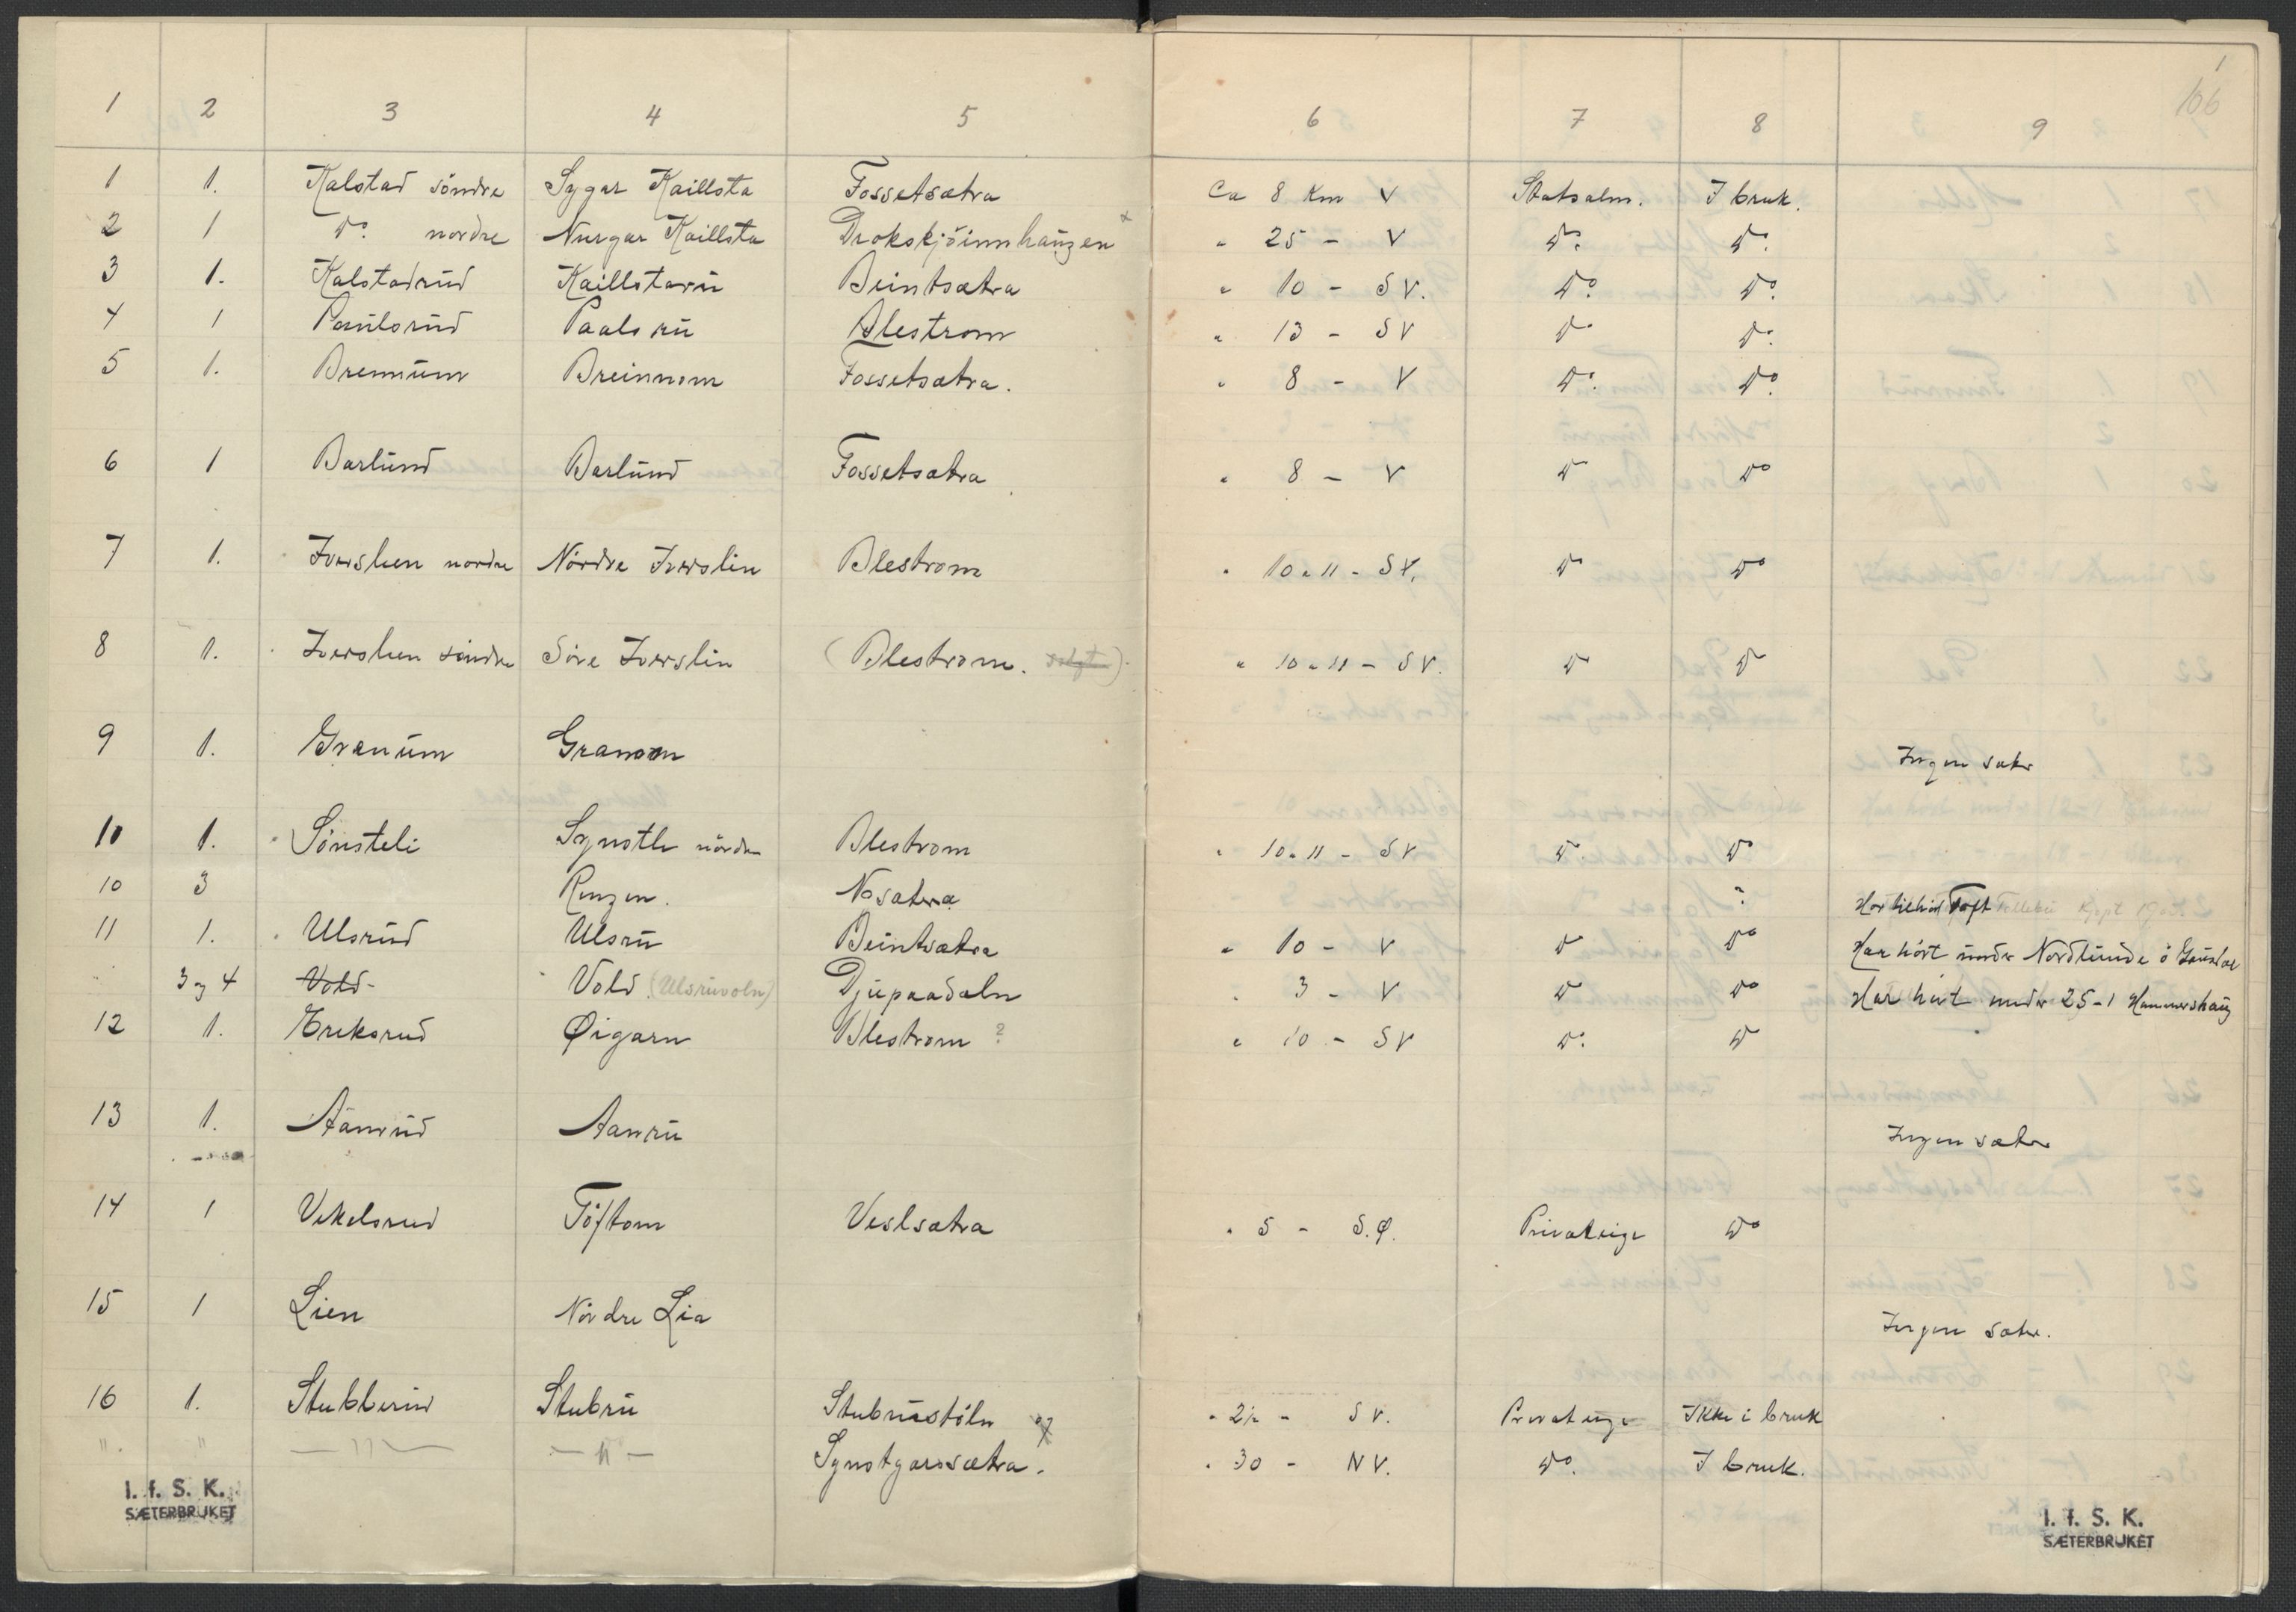 1 2 3 4 5 6 7 8 9
1
106
1 1. Kalstad söndre Sygar Kaillsta Fossetsætra Ca 8 Km V Statsalm. I bruk.
2 1 Do. nordre Nurgar Kaillsta Drokskjöinnhaugen x " 25 - V Do. Do.
3 1. Kalstadrud Kaillstarü Beintsætra " 10 - SV. Do. Do.
4 1 Paulsrud Paalsrü Blestrom " 13 - SV Do Do.
5 1. Brennum Breinnom Fossetsætra. " 8 - V Do. Do.
6 1 Barlund Barlund Fossetsætra " 8 - V Do Do
7 1. Iverslien nordre Nördre Iverslin Blestrom " 10 a 11 - SV. Do Do
8 1. Iverslien söndre Söre Iverslin (Blestrom. solgt) " 10 a 11 - SV. Do Do
9 1. Granum Granom Ingen sæter
10 1. Sönsteli Synstli nördre Blestrom " 10 a 11 - SV Do. Do
10 3 Ringen. Nosætra ? Har tilhört Toft
11 1. Ulsrud Ulsrü Beintsætra " 10 - V Do Do Har hört under Nordlunde ö Gausdal
" 3 og 4 Vold Vold (Ulsrüvoln) Djupaadaln " 3 - V Do Do Har hört under 25-1 Hammershaug
12 1. Eriksrud Øigarn Blestrom ? " 10 - SV Do. Do
13 1. Aanrud Aanrü Ingen sæter
14 1 Vekelsrud Töftom Veslsætra " 5 - S.Ø. Privateige Do
15 1 Lien Nördre Lia Ingen sæter.
16 1. Stubberud Stubrü Stubrüstöln " 2½ - SV. Privateige Ikke i bruk
" " — " — — " — Synstgarssætra. " 30 - NV. Do. I bruk.
I. f. S. K.
SÆTERBRUKET
I. f. S. K.
SÆTERBRUKET